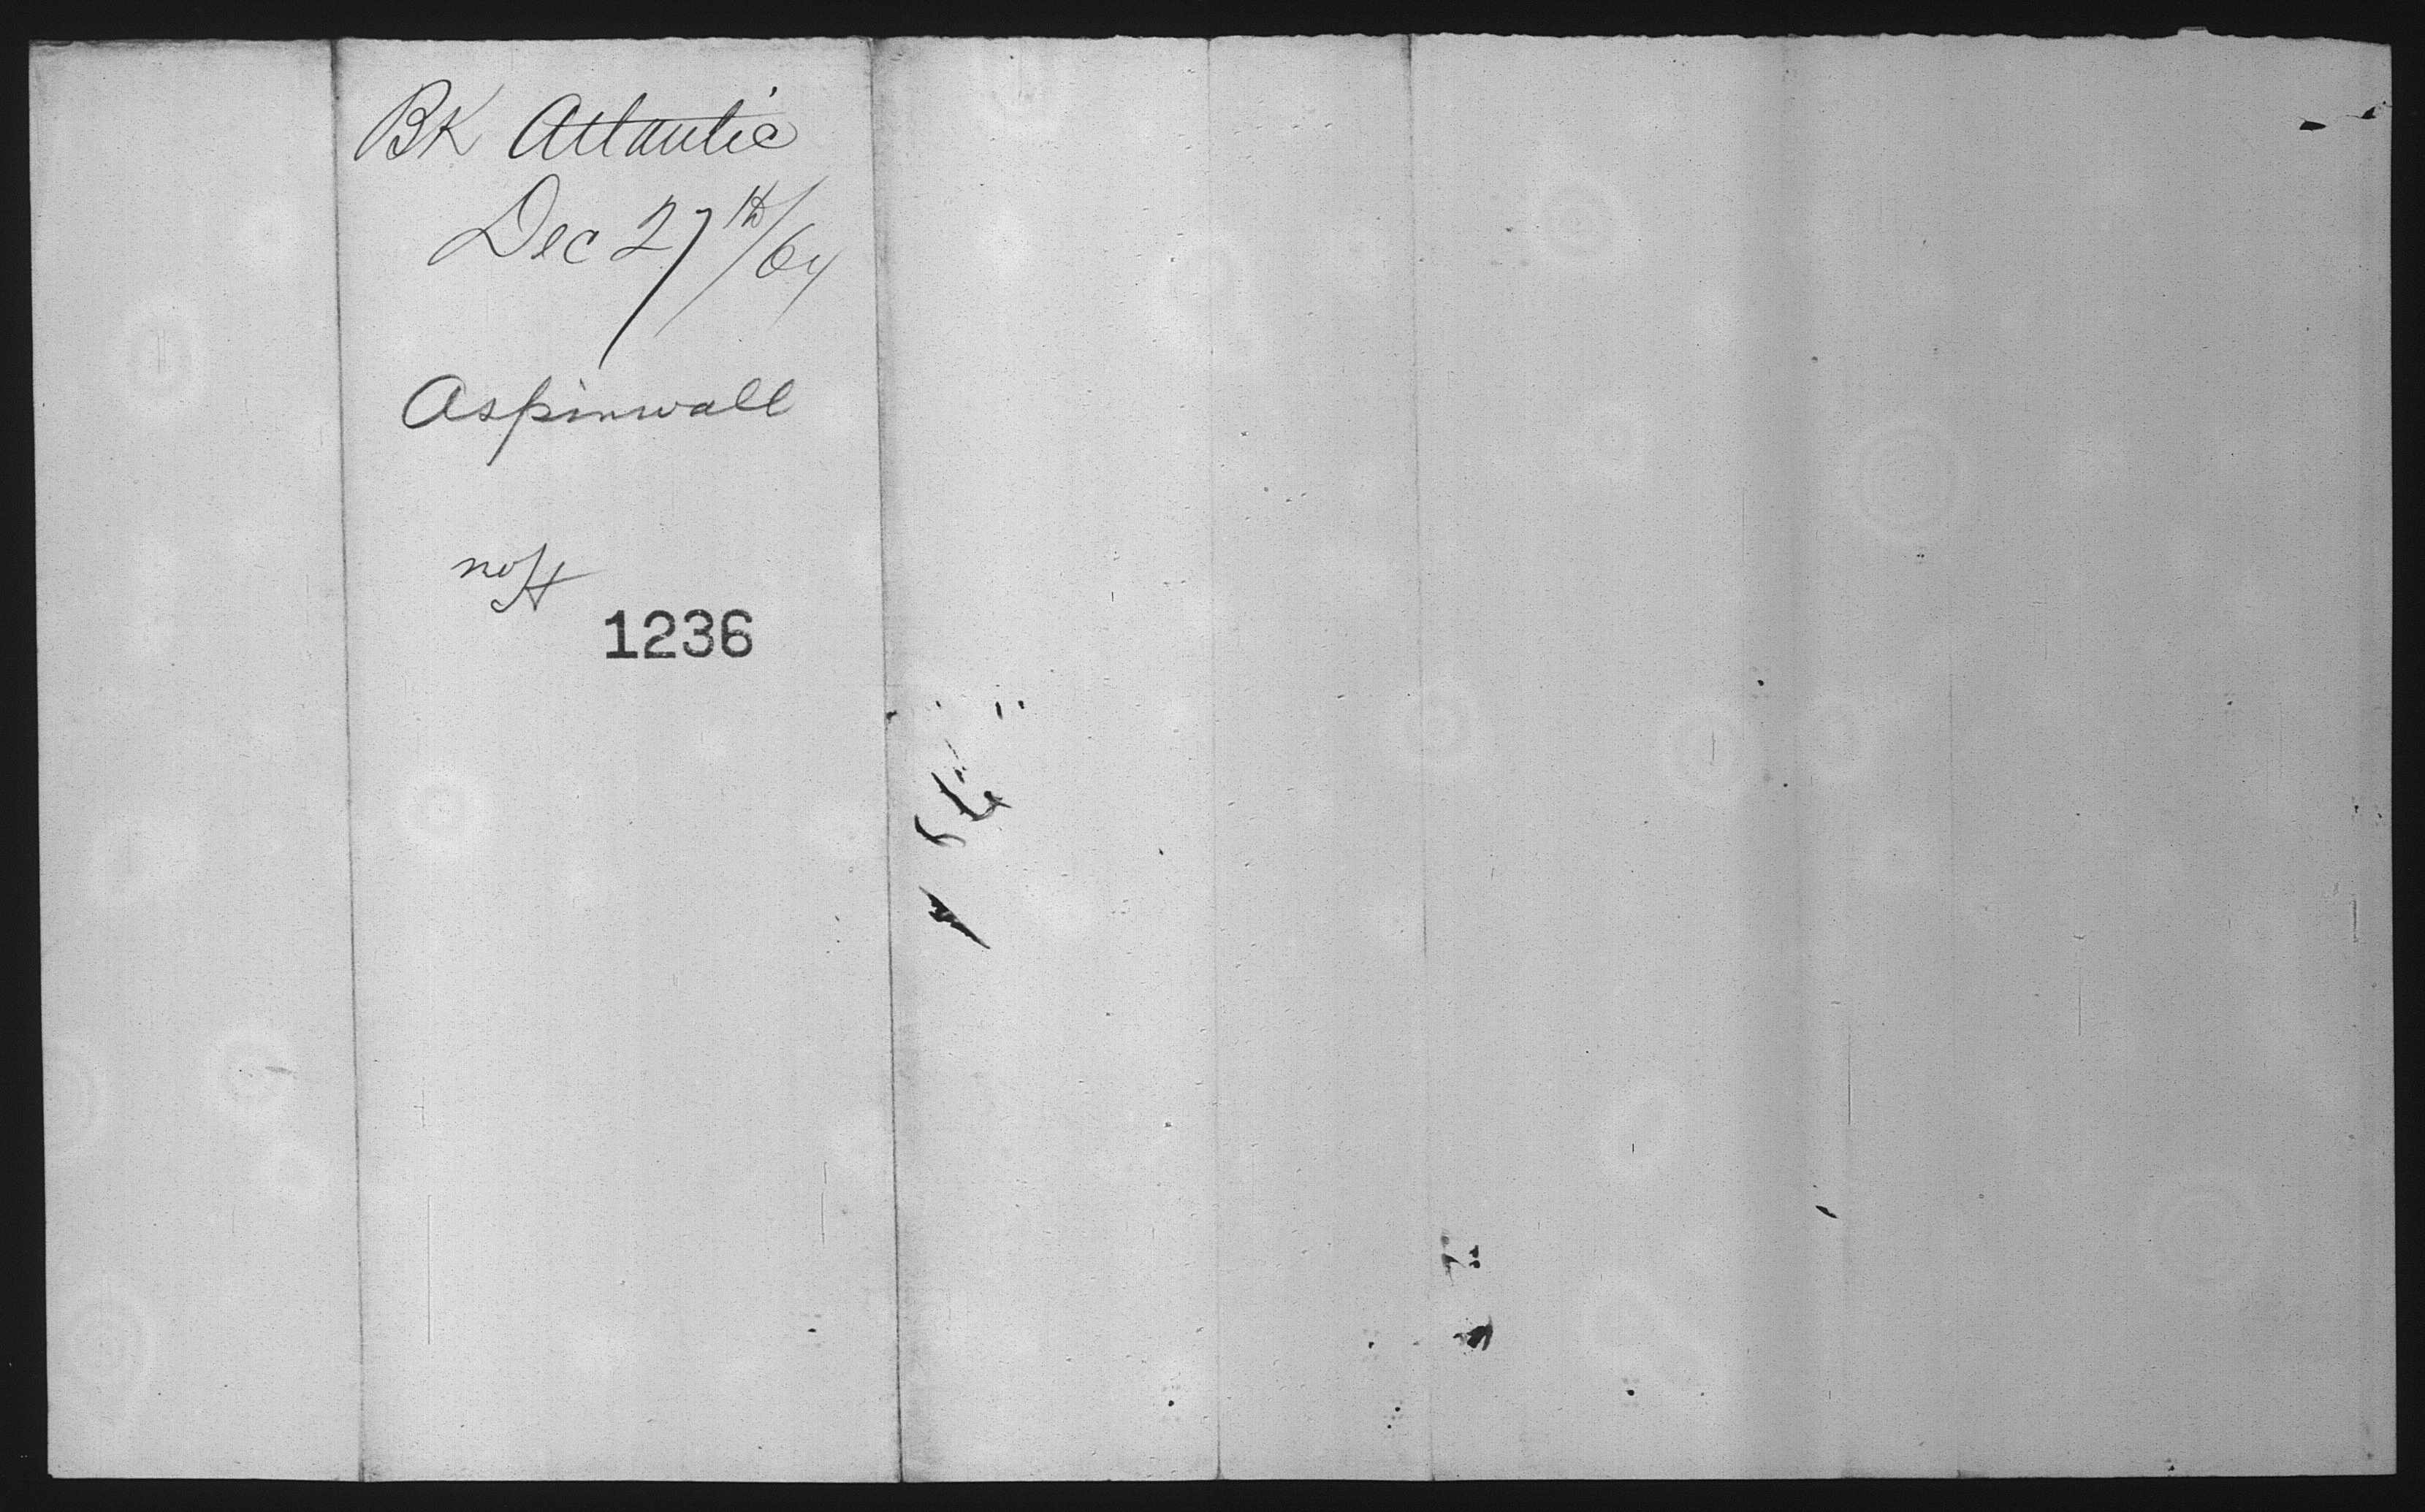 Bk Atlantic
Dec 27th/64
Aspinwall
no H
1236